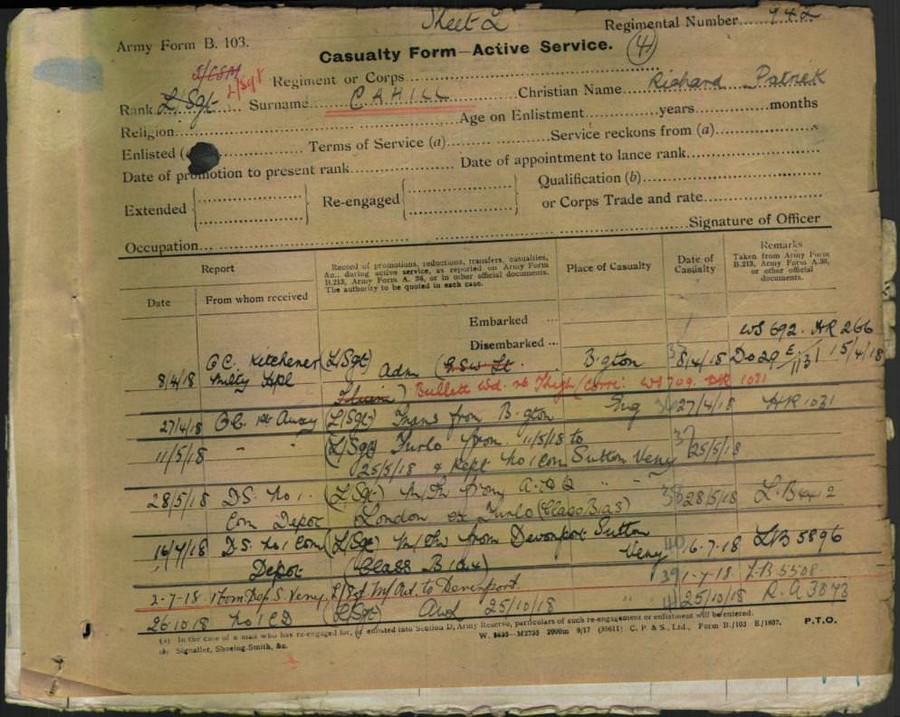 Sheet 2
Regimental Number 942
Army Form B. 103.
Casualty Form—Active Service.
(4)
T/CSM
L/Sgt
Regiment or Corps
Rank L/Sgt Surname CAHILL Christian Name Richard Patrick
Religion Age on Enlistment years months
Enlisted ( Terms of Service (a) Service reckons from (a)
Date of promotion to present rank Date of appointment to lance rank
Extended Re-engaged Qualification (b)
or Corps Trade and rate
Occupation Signature of Officer
Report
Date From whom received
Record of promotions, reductions, transfers, casualties, &c., during active service, as reported on Army Form B.213, Army Form A. 36, or in other official documents. The authority to be quoted in each case.
Place of Casualty
Date of Casualty
Remarks
Taken from Army Form B.213, Army Form A.36, or other official documents.
Embarked
Disembarked
WS 692. HR 266
8/4/18 O.C. Kitchener (L/Sgt) Adm (G.S.W. Lt. B'gton 8/4/18 Do 29 E/1131 15/4/18
Milty Hpl ) Bullett Wd. Thigh/Corr: WS 709. HR 1031
27/4/18 (L/Sgt) Trans from B'gton Eng 27/4/18 HR 1031
11/5/18 " " (L/Sgt) Furlo from 11/5/18 to 37
25/5/18 & Rept No 1 Com Sutton Veny 25/5/18
28/5/18 D.S. No 1. (L/Sgt) M/In from A.H.Q " " 38 28/5/18 L.B 442
Com Depot London ex Furlo (Class B1a3)
16/7/18 D.S. No 1 Com (L/Sgt) M/In from Devonport Sutton
Depot (Class B1a4) Veny 40 16-7-18 LB 5896
2-7-18 1 Com Dep S. Veny L/Sgt M/Out to Devonport 39 1-7-18 LB 5508
26.10.18 No 1 CD (L/Sgt) 25/10/18 " 41 25/10/18 R.A 3873
(a) In the case of a man who has re-engaged for, or enlisted into Section D, Army Reserve, particulars of such re-engagement or enlistment will be entered.
(b) Signaller, Shoeing-Smith, &c.
W. 5435—M2733 2000m 9/17 (35611) C. P. & S., Ltd., Form B./103 E/1837. P.T.O.